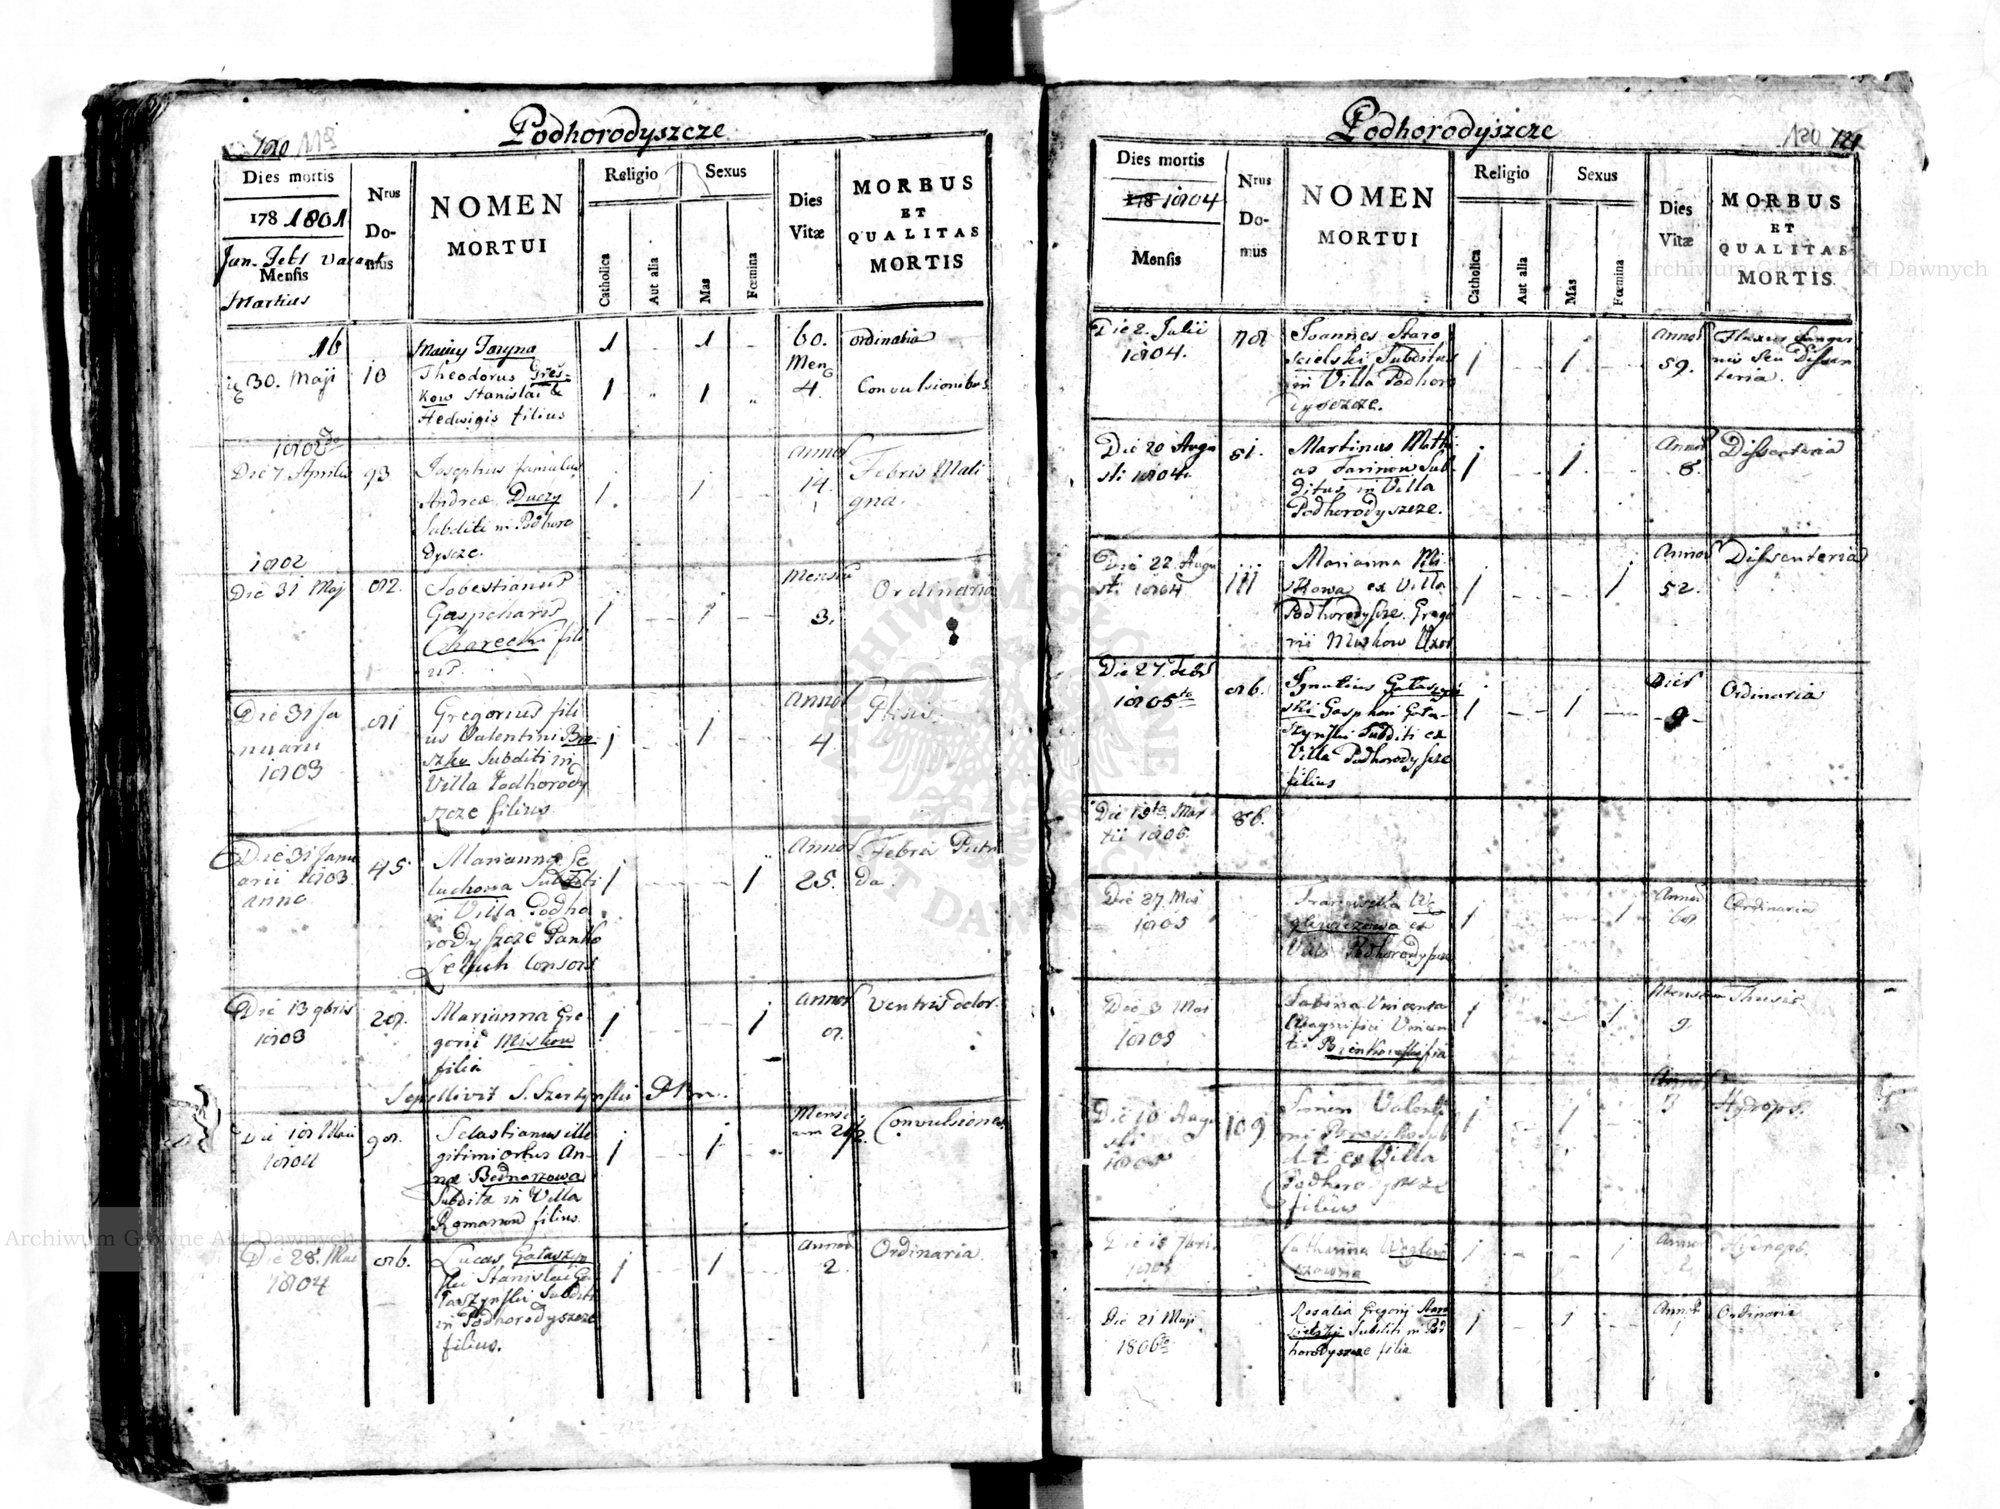 Podhorodyszcze
120 119
Dies mortis
178 1801
Jan. Febr vacant
Mensis
Martius
Nrus
Do-
mus
NOMEN
MORTUI
Religio
Catholica
Aut alia
Sexus
Mas
Fœmina
Dies
Vitæ
MORBUS
ET
QUALITAS
MORTIS
16
1 - 1 -
60.
ordinaria
30. Maji
10
Theodorus Gres-
kow Stanislai &
Hedwigis filius
1 " 1 "
Men
4.
Convulsionibus
1802
Die 7 Aprilis
93
Josephus famulus
Andreæ Duczy
Subditi in Podhoro
dyscze.
1. 1
Annos
14.
Febris Mali
gna.
1802
Die 31 Maj
82.
Sobestianus
Gaspcharis
Charecki fili
us.
1 1
Mensiu
3.
Ordinaria
Die 31 Ja
nuarii
1803
81
Gregorius fili
us Valentini Bro
szko Subditi in
Villa Podhorody
szcze filius
1 1
Annos
4
Ptisis
Die 31 Janu
arii 1803
anno.
45
Marianna Le
luchowa Subditi
in Villa Podho
rodyszcze Panko
Leluch Consors
1 1
Annos
25.
Febris Putri
da.
Die 13 9bris
1803
28.
Marianna Gre
gorii Miskow
filia
1 1
Annos
8.
Ventris dolor.
Sepellivit S.
Die 18 Maii
1804
98.
Sebastianus ille
gitimi ortus An-
næ Bednarzowa
Subditæ in Villa
Romanow filius
1 1
Mensi
um 2 1/2.
Convulsiones
Die 28. Mai
1804
86.
Lucas Gałaszyn
ski Stanislai Ga
łaszynski Subditi
in Podhorodyszcze
filius.
1 1
Annos
2.
Ordinaria
Podhorodyszcze
120 121
Dies mortis
178 1804
Mensis
Nrus
Do-
mus
NOMEN
MORTUI
Religio
Catholica
Aut alia
Sexus
Mas
Fœmina
Dies
Vitæ
MORBUS
ET
QUALITAS
MORTIS
Die 2. Julii
1804.
78.
Joannes Staro
sielski Subditus
in Villa Podhoro
dyszcze.
1 1
Annos
59.
Fluxus Sangui
nis seu Dissen
teria.
Die 20 Augu
sti 1804.
81.
Martinus Mathi
as Farinow Sub
ditus in Villa
Podhorodyszcze.
1 1
Annos
8.
Dissenteria
Die 22 Augu
sti 1804
111
Marianna Mi
skowa ex Villa
Podhorodyszcze. Grego
rii Miskow Uxor
1 1
Annos
52.
Dissenteria
Die 27 Febr
1805to
86.
Ignatius Gałaszyń
ski Gasphari Gała-
szynski Subditi ex
Villa Podhorodyszcze
filius
1 1
Dies
9
Ordinaria
Die 19ta Mar
tii 1806.
86.
Die 27 Mai
1805
ex
Villa Podhorodyszcze
1 1
Annos
68.
Ordinaria
Die 3 Mai
1808
Sabina Vincenta
Magnifici Vincen
tii Bienkowski fia
1 1
Mensium
9.
Thisis
Die 10 Augu
sti
1805
109.
Simon Valenti
ni Broszko sub
diti ex Villa
Podhorodyszcze
filius
1 1
Annos
3
Hydrops.
Die 15
Catharina
1 1
Annos
2
Hydrops.
Die 21 Maji
1806to
Rosalia Gregorij Staro
sielski Subditi in Pod
horodyszcze filia
1 1
Ordinaria
Archiwum Główne Akt Dawnych
Archiwum Główne Akt Dawnych
ARCHIWUM GŁÓWNE AKT DAWNYCH